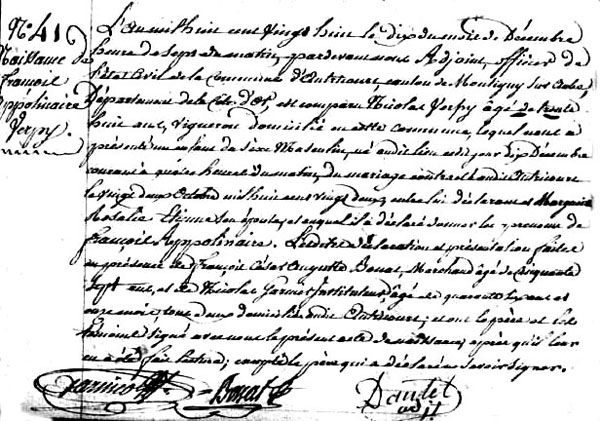 N.º 41
Naissance de
François
Appolinaire
Verpy.
L'an mil huit cent vingt huit le dix du mois de Décembre
heure de sept du matin, pardevant nous Adjoint, officier de
l'état Civil de la commune d'Autricourt, canton de Montigny sur Aube,
Département de la Côte d'Or, est comparu Nicolas Verpy âgé de trente
huit ans, vigneron domicilié en cette commune, lequel nous a
présenté un enfant de sexe Masculin, né audit lieu cejourd'hui dix Décembre
courant à quatre heures du matin, du mariage contracté audit Autricourt
le vingt deux Octobre mil huit cent vingt deux, entre lui déclarant et Margueritte
Rosalie Etienne son épouse, et auquel il a déclaré donner les prénoms de
François Appolinaire. Lesdites déclaration et présentation faites
en présence de François César Auguste Bouat, Marchand âgé de cinquante
sept ans, et de Nicolas Garnier Instituteur, âgé de quarante ans et
onze mois, tous deux domiciliés audit Autricourt; et ont le père et les
témoins signé avec nous le présent acte de naissance, après qu'il leur
en a été fait lecture; excepté le père qui a déclaré ne savoir signer.
Bouat
Daudet
adj.t